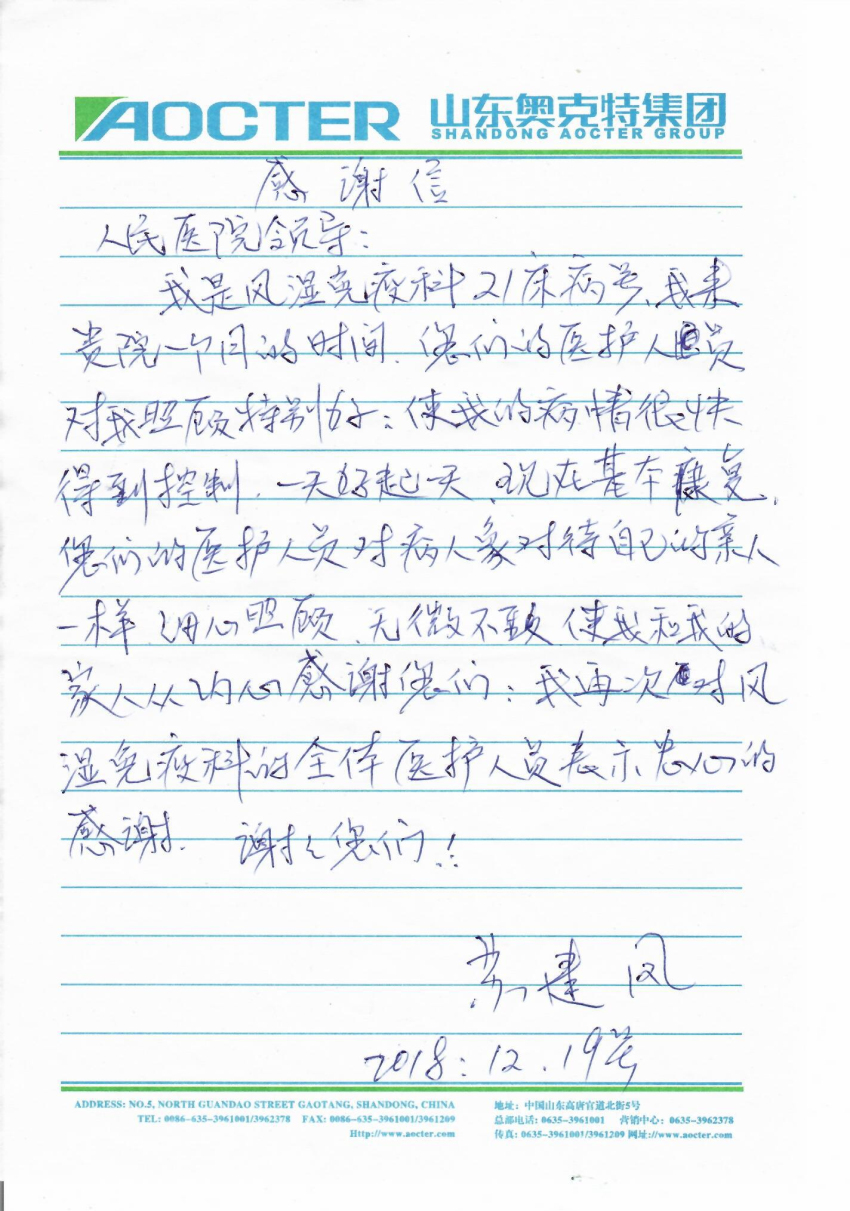 AOCTER 山东奥克特集团
SHANDONG AOCTER GROUP
感谢信
人民医院领导:
我是风湿免疫科21床病号、我来
贵院一个月的时间、您们的医护人员
对我照顾特别好;使我的病情很快
得到控制、一天好起一天、现在基本康复、
您们的医护人员对病人象对待自己的亲人
一样、细心照顾、无微不致、使我和我的
家人从内心感谢您们;我再次对风
湿免疫科的全体医护人员表示忠心的
感谢. 谢谢您们!
苏建凤
2018:12.19号
ADDRESS: NO.5, NORTH GUANDAO STREET GAOTANG, SHANDONG, CHINA
TEL: 0086-635-3961001/3962378 FAX: 0086-635-3961001/3961209
Http://www.aocter.com
地址: 中国山东高唐官道北街5号
总部电话: 0635-3961001 营销中心: 0635-3962378
传真: 0635-3961001/3961209 网址://www.aocter.com